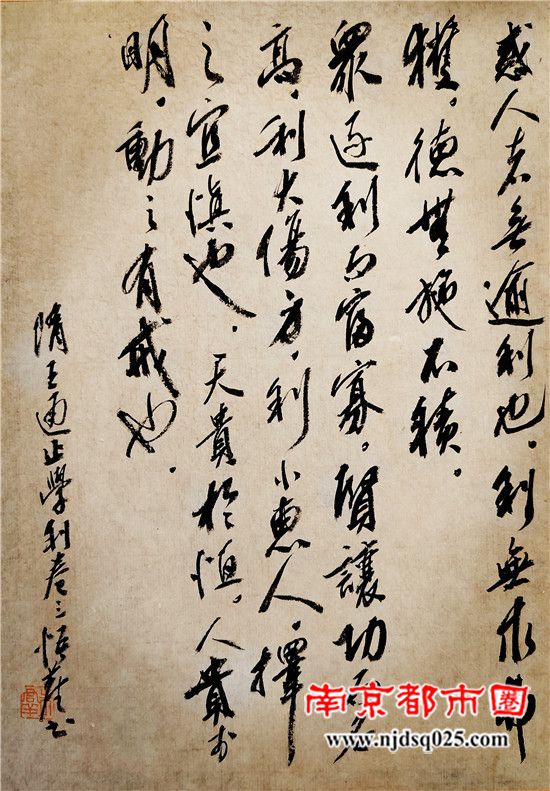 惑人者無逾利也。利無求弗
獲。德無施不積。
眾逐利而富寡。賢讓功而名
高。利大傷身，利小惠人，擇
之宜慎也。天貴於，人貴於
明，動之有戒也。
隋王通止學利卷三書
南京都市圈
www.njdsq025.com